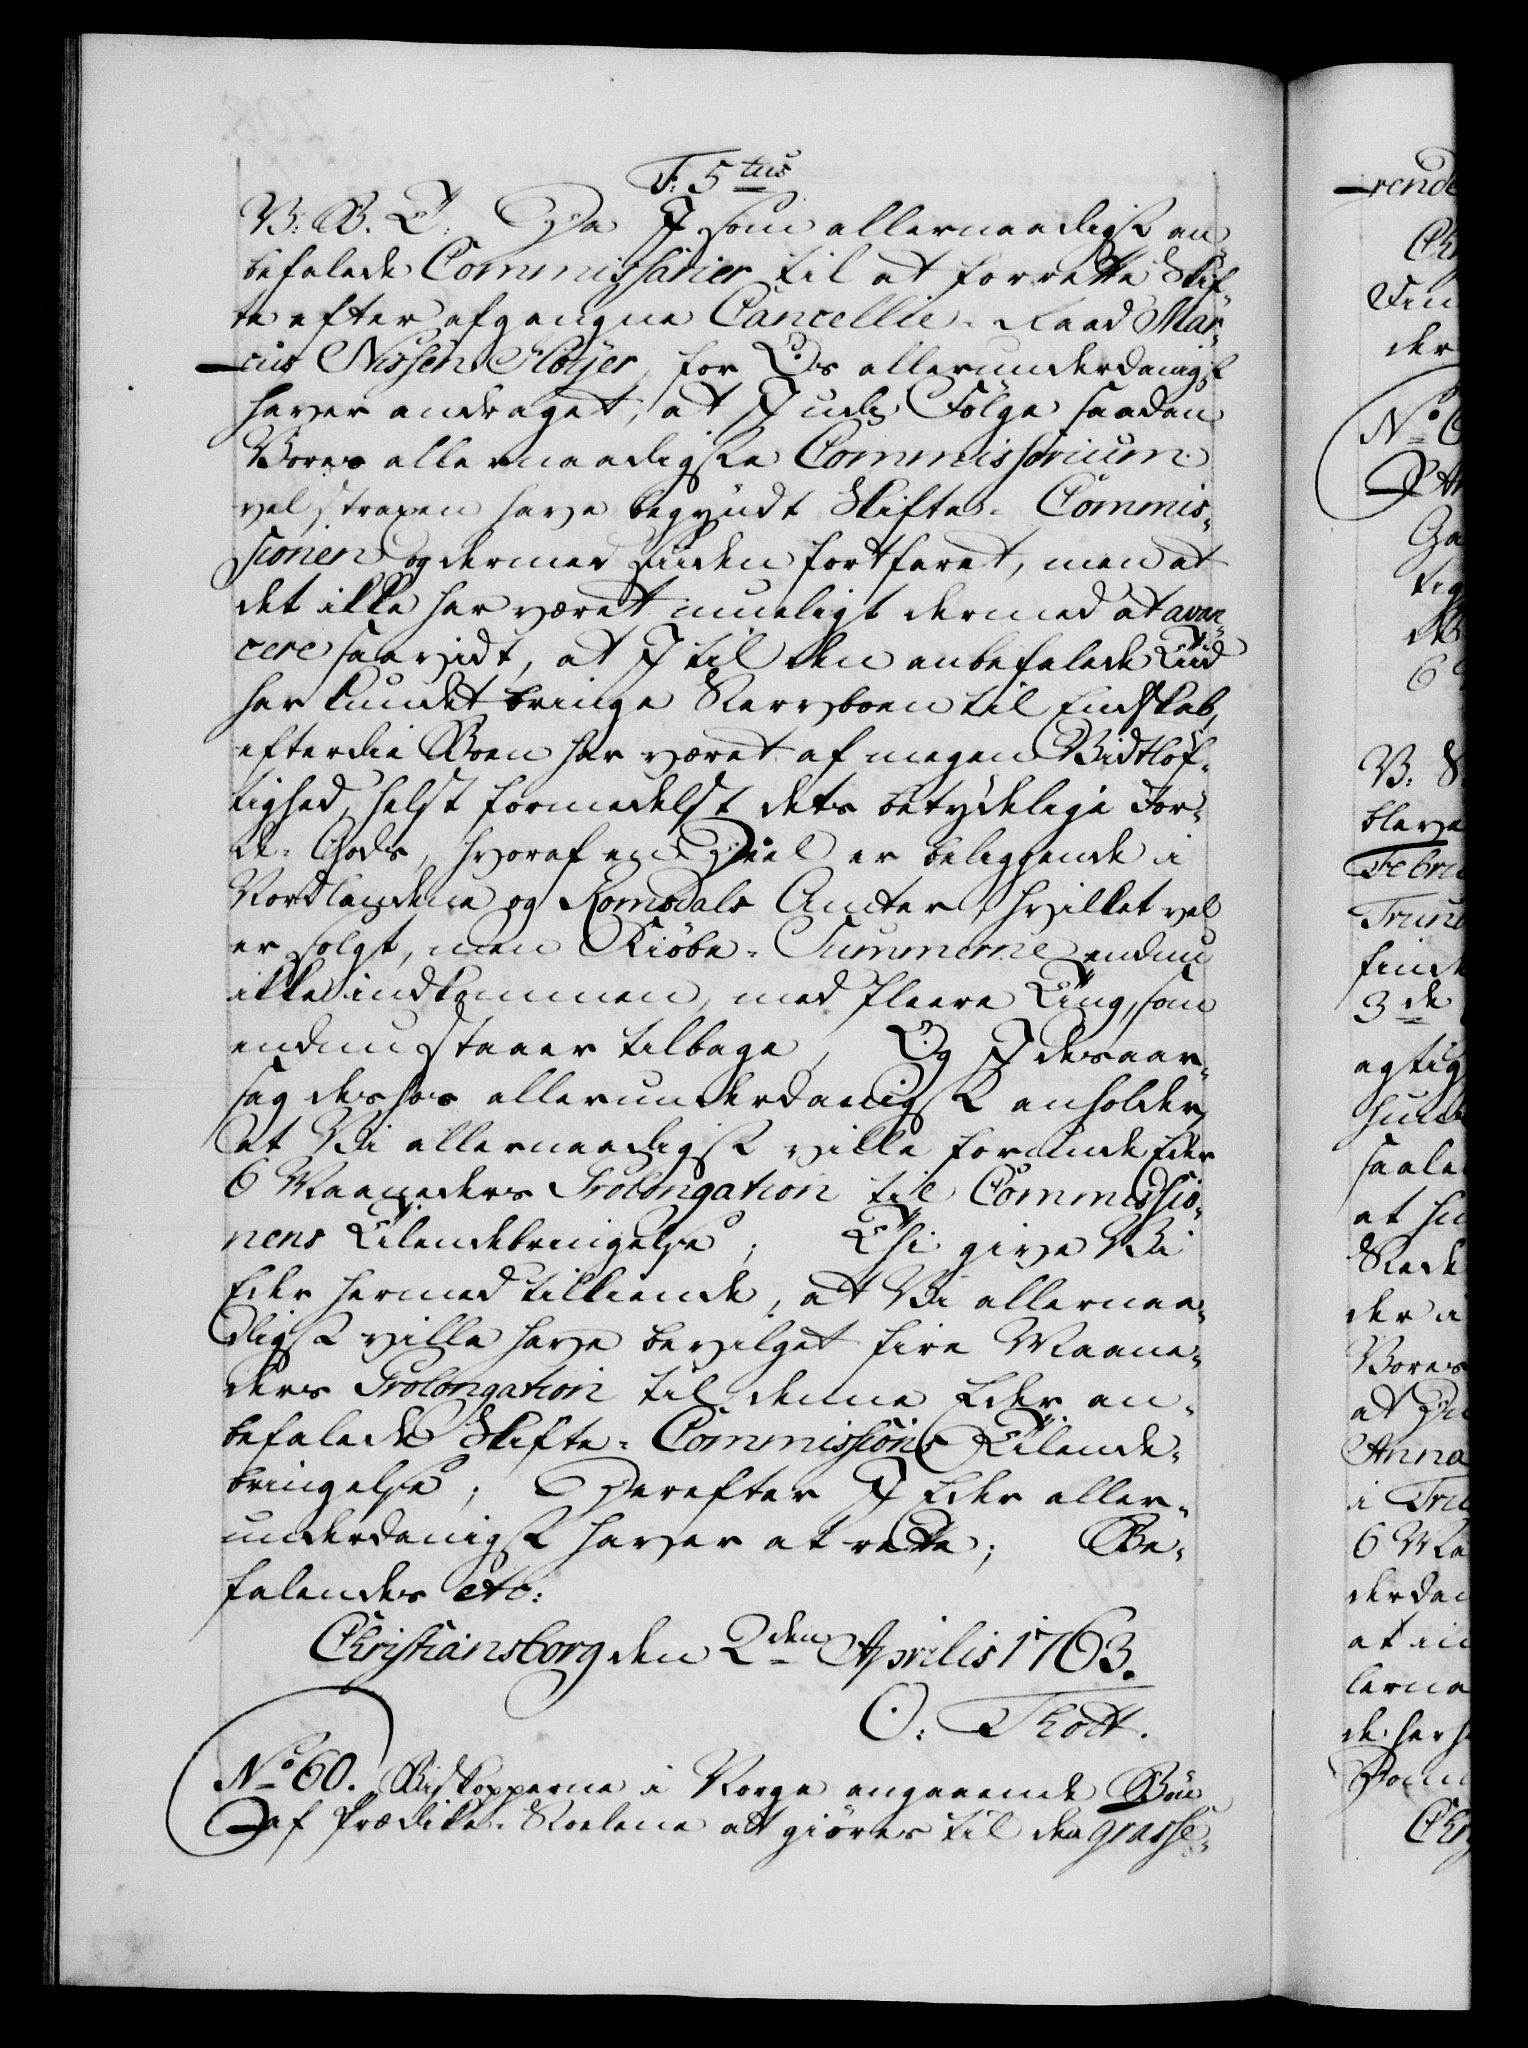 F: 5tus
V: B. T: Da I som allernaadigst an-
befalede Commissarier til at forrette Skif-
te efter afgangne Cancellie-Raad Mar-
cus Nissen Höyer, for Os allerunderdanigst
haver andraget, at I udi Fölge saadan
Vores allernaadigste Commissorium
vel strapen have begyndt Skifte-Commis-
sionen og dermed siden fortfaret, men at
det ikke har været mueligt dermed at avan-
cere saavidt, at I til den anbefalede Tiid
har kundet bringe Stervboen til Endskab,
efterdie Boen har været af megen Vidtlöf-
tighed, helst formedelst dets betydelige Jor-
de-Gods, hvoraf en Deel er beliggende i
Nordlandene og Romsdals Amter, hvilket vel
er solgt, men Kiöbe-Summerne endnu
ikke indkommen, med fleere Ting, som
endnu staaer tilbage, Og I desaar-
sag deshos allerunderdanigst anholder,
at Vi allernaadigst ville forunde Eder
6 Maaneders Prolongation til Commissio-
nens Tilendebringelse; Thi give Vi
Eder hermed tilkiende, at Vi allernaa-
digst ville have bevilget fire Maane-
ders Prolongation til denne Eder an-
befalede Skifte-Commissions Tilende-
bringelse; Derefter I Eder aller-
underdanigst haver at rette; Be-
falendes etc:
Christiansborg den 2den Aprilis 1763.
O. Thott.
No 60. Biskopperne i Norge angaaende Bön
af Prædike-Stolene at giöres til den grasse-
rende
No 6
6
V: S
bleve
Febru
Trund
finde
3de
agtig
saale
at
der i
Vores
at
Anna
i Tru
6 Ma
derdan
lerna